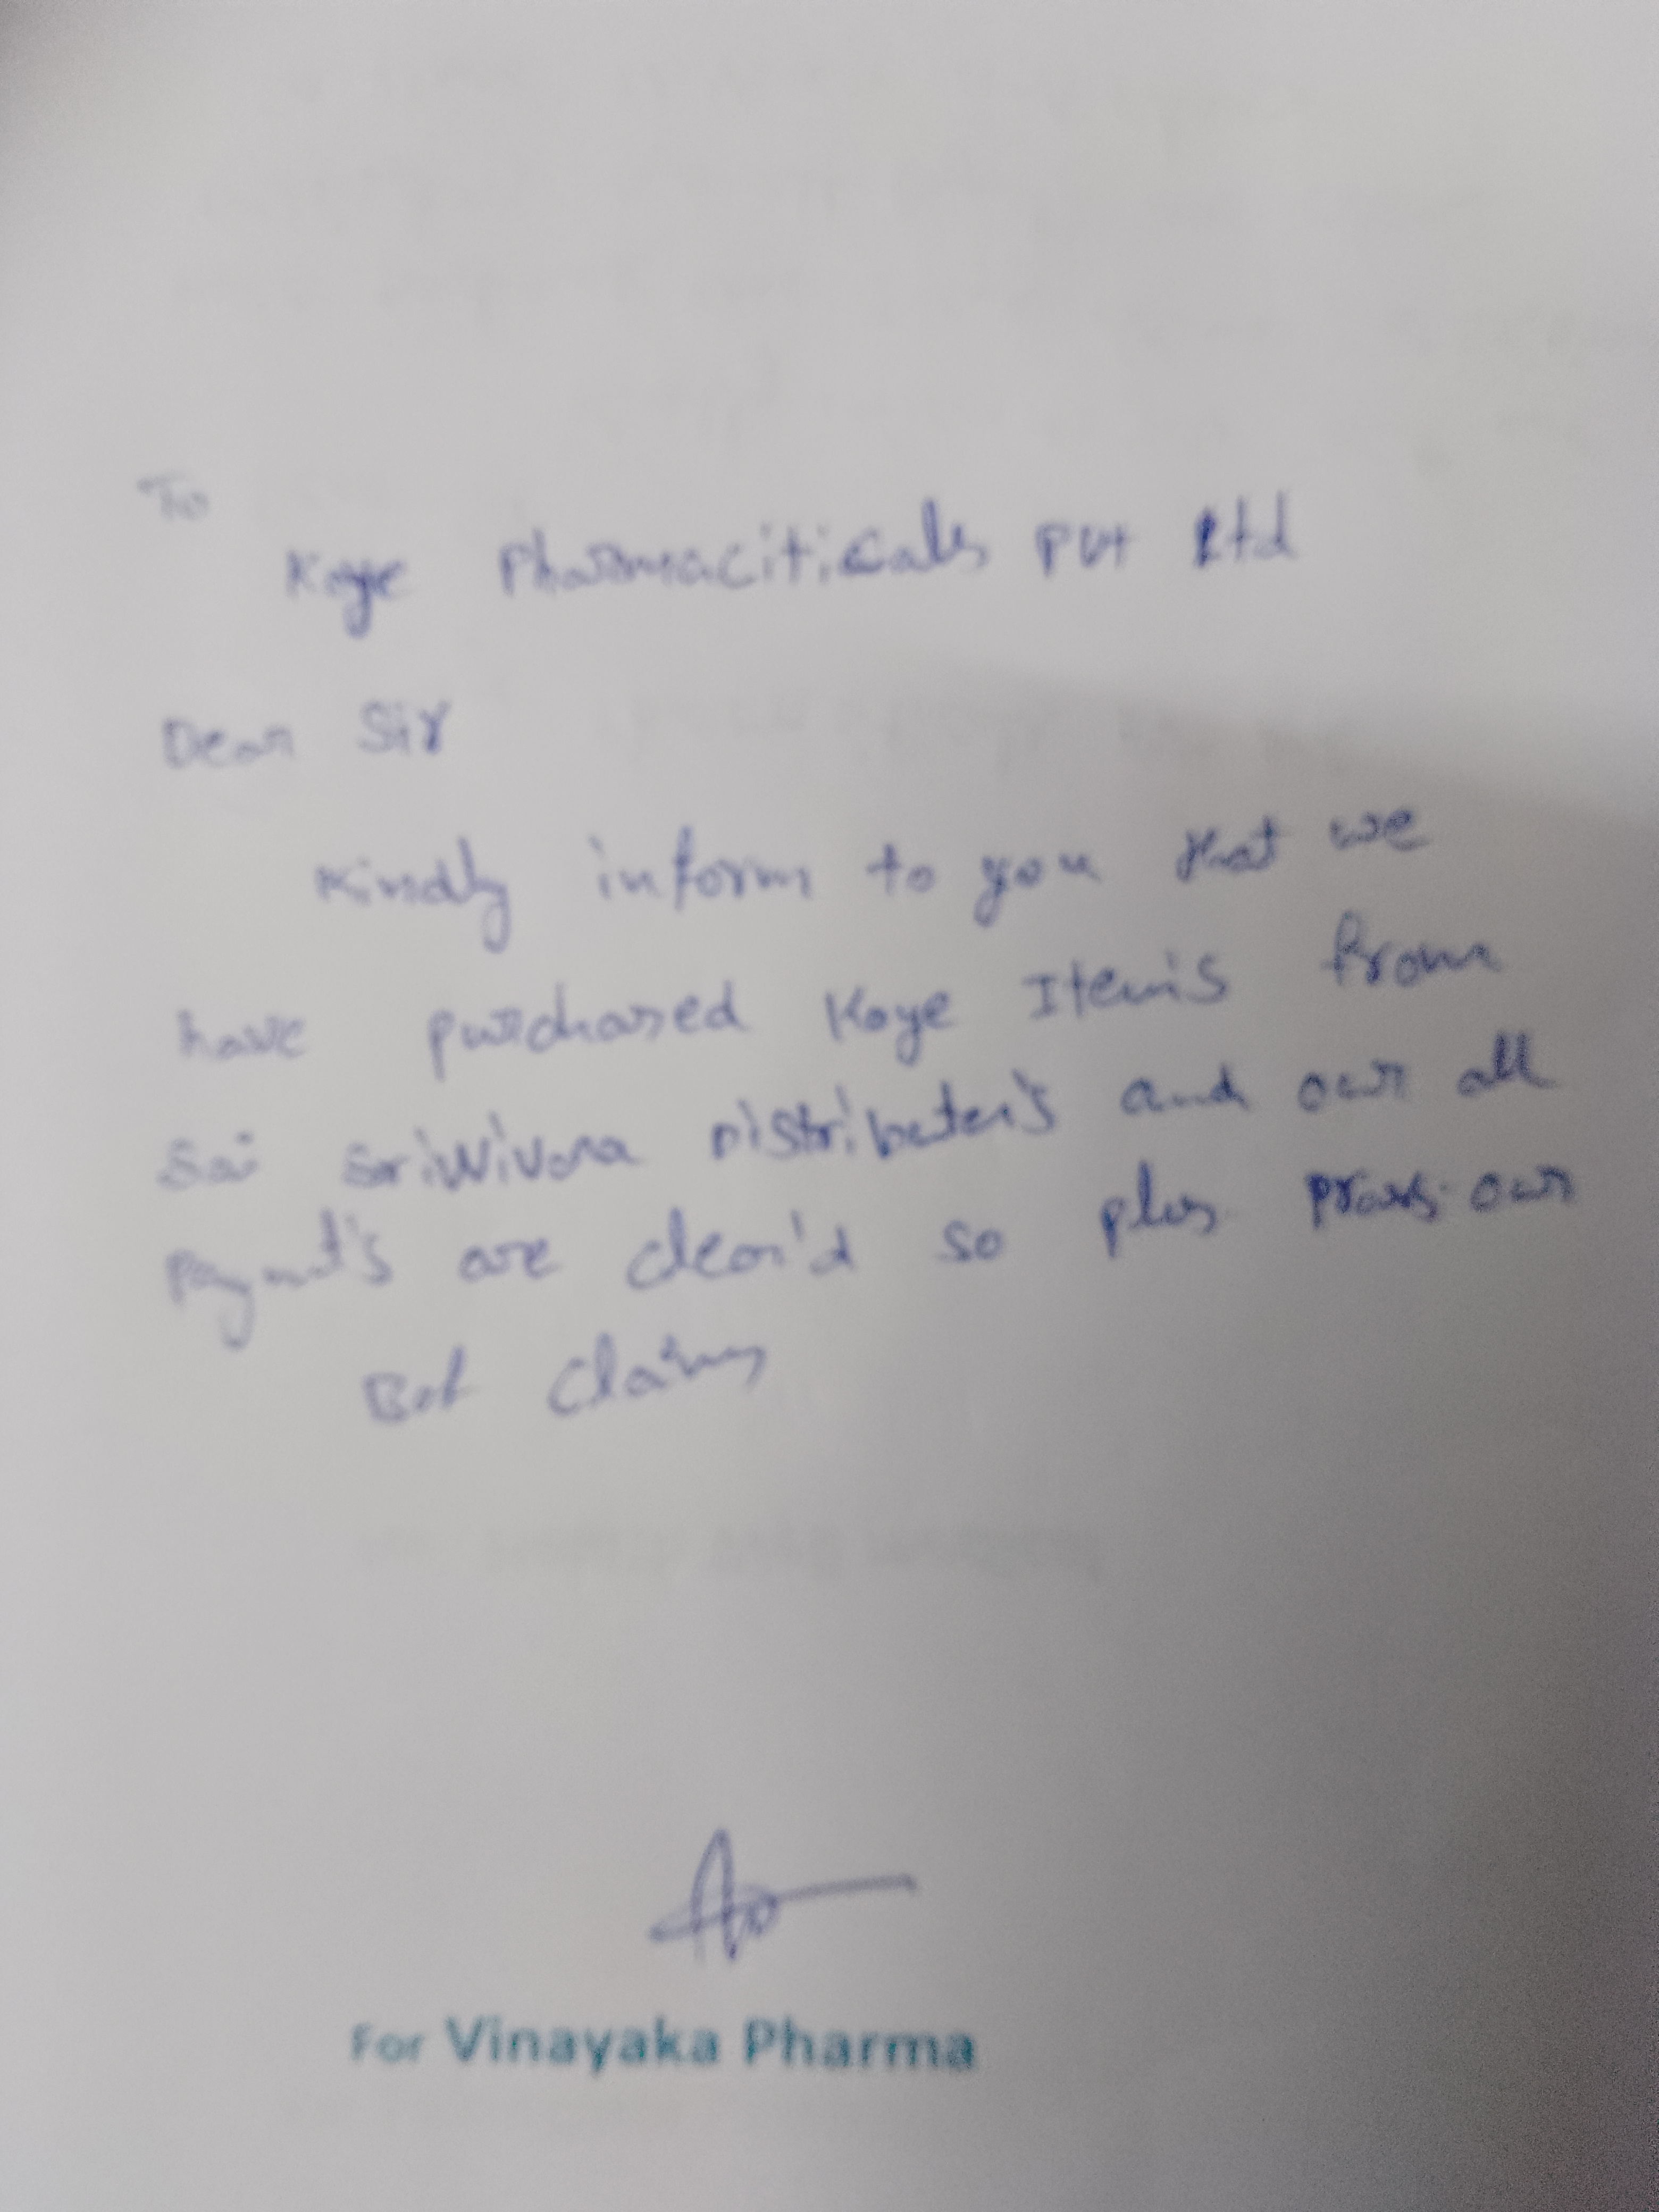 To
Koye Pharmaciticals Pvt Ltd
Dear Sir
Kindly inform to you that we
have purchased Koye Item's from
Sai Distributer's and our all
Payment's are clear'd so our
Claims
For Vinayaka Pharma